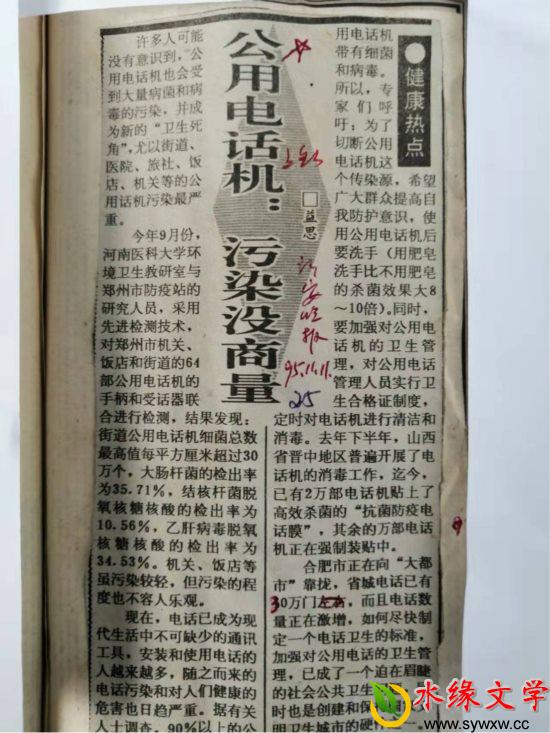 ●健康热点
公用电话机：污染没商量
□益思
95.11.11.
25
许多人可能
没有意识到，公
用电话机也会受
到大量病菌和病
毒的污染，并成
为新的“卫生死
角”，尤以街道、
医院、旅社、饭
店、机关等的公
用话机污染最严
重。
今年9月份，
河南医科大学环
境卫生教研室与
郑州市防疫站的
研究人员，采用
先进检测技术，
对郑州市机关、
饭店和街道的64
部公用电话机的
手柄和受话器联
合进行检测，结果发现：
街道公用电话机细菌总数
最高值每平方厘米超过30
万个，大肠杆菌的检出率
为35.71%，结核杆菌脱
氧核糖核酸的检出率为
10.56%，乙肝病毒脱氧
核糖核酸的检出率为
34.53%。机关、饭店等
虽污染较轻，但污染的程
度也不容人乐观。
现在，电话已成为现
代生活中不可缺少的通讯
工具，安装和使用电话的
人越来越多，随之而来的
电话污染和对人们健康的
危害也日趋严重。据有关
人士调查，90%以上的公
用电话机
带有细菌
和病毒。
所以，专
家们呼
吁：为了
切断公用
电话机这
个传染源，希望
广大群众提高自
我防护意识，使
用公用电话机后
要洗手（用肥皂
洗手比不用肥皂
的杀菌效果大8
～10倍）。同时，
要加强对公用电
话机的卫生管
理，对公用电话
管理人员实行卫
生合格证制度，
定时对电话机进行清洁和
消毒。去年下半年，山西
省晋中地区普遍开展了电
话机的消毒工作，迄今，
已有2万部电话机贴上了
高效杀菌的“抗菌防疫电
话膜”，其余的万部电话
机正在强制装贴中。
合肥市正在向“大都
市”靠拢，省城电话已有
30万门，而且电话数
量正在激增，如何尽快制
定一个电话卫生的标准，
加强对公用电话的卫生管
理，已成了一个迫在眉睫
的社会公共卫生
时也是创建和保
明卫生城市的硬件
水缘文学
www.sywxw.cc